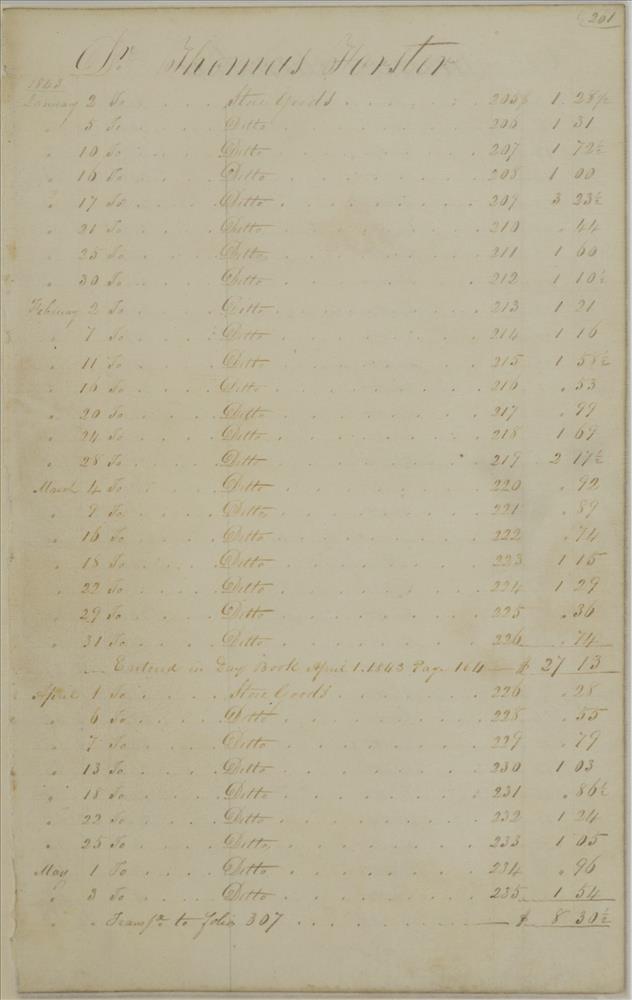 201
Dr. Thomas Forster
1843
January 2 To . . . . Store Goods . . . . . . 205 $ 1. 28½
" 5 To . . . . Ditto . . . . . . . 206 1 31
" 10 To . . . . Ditto . . . . . . . 207 1 72½
" 16 To . . . . Ditto . . . . . . . 208 1 00
" 17 To . . . . Ditto . . . . . . . 209 3 23½
" 21 To . . . . Ditto . . . . . . . 210 . 44
" 25 To . . . . Ditto . . . . . . . 211 1 60
" 30 To . . . . Ditto . . . . . . . 212 1 10½
February 2 To . . . . Ditto . . . . . . . 213 1 21
" 7 To . . . . Ditto . . . . . . . 214 1 16
" 11 To . . . . Ditto . . . . . . . 215 1 58½
" 16 To . . . . Ditto . . . . . . . 216 . 53
" 20 To . . . . Ditto . . . . . . . 217 . 99
" 24 To . . . . Ditto . . . . . . . 218 1 69
" 28 To . . . . Ditto . . . . . . . 219 2 17½
March 4 To . . . . Ditto . . . . . . . 220 . 92
" 9 To . . . . Ditto . . . . . . . 221 . 89
" 16 To . . . . Ditto . . . . . . . 222 . 74
" 18 To . . . . Ditto . . . . . . . 223 1 15
" 22 To . . . . Ditto . . . . . . . 224 1 29
" 29 To . . . . Ditto . . . . . . . 225 . 36
" 31 To . . . . Ditto . . . . . . . 226 . 74
— Entered in Day Book April 1. 1843 Page 164 — $ 27 13
April 1 To . . . . Store Goods . . . . . . 226 . 28
" 6 To . . . . Ditto . . . . . . . 228 . 55
" 7 To . . . . Ditto . . . . . . . 229 . 79
" 13 To . . . . Ditto . . . . . . . 230 1 03
" 18 To . . . . Ditto . . . . . . . 231 . 86½
" 22 To . . . . Ditto . . . . . . . 232 1 24
" 25 To . . . . Ditto . . . . . . . 233 1 05
May 1 To . . . . Ditto . . . . . . . 234 . 96
" 3 To . . . . Ditto . . . . . . . 235 1 54
" " Transfd. to folio 307 . . . . . . . — $ 8 30½